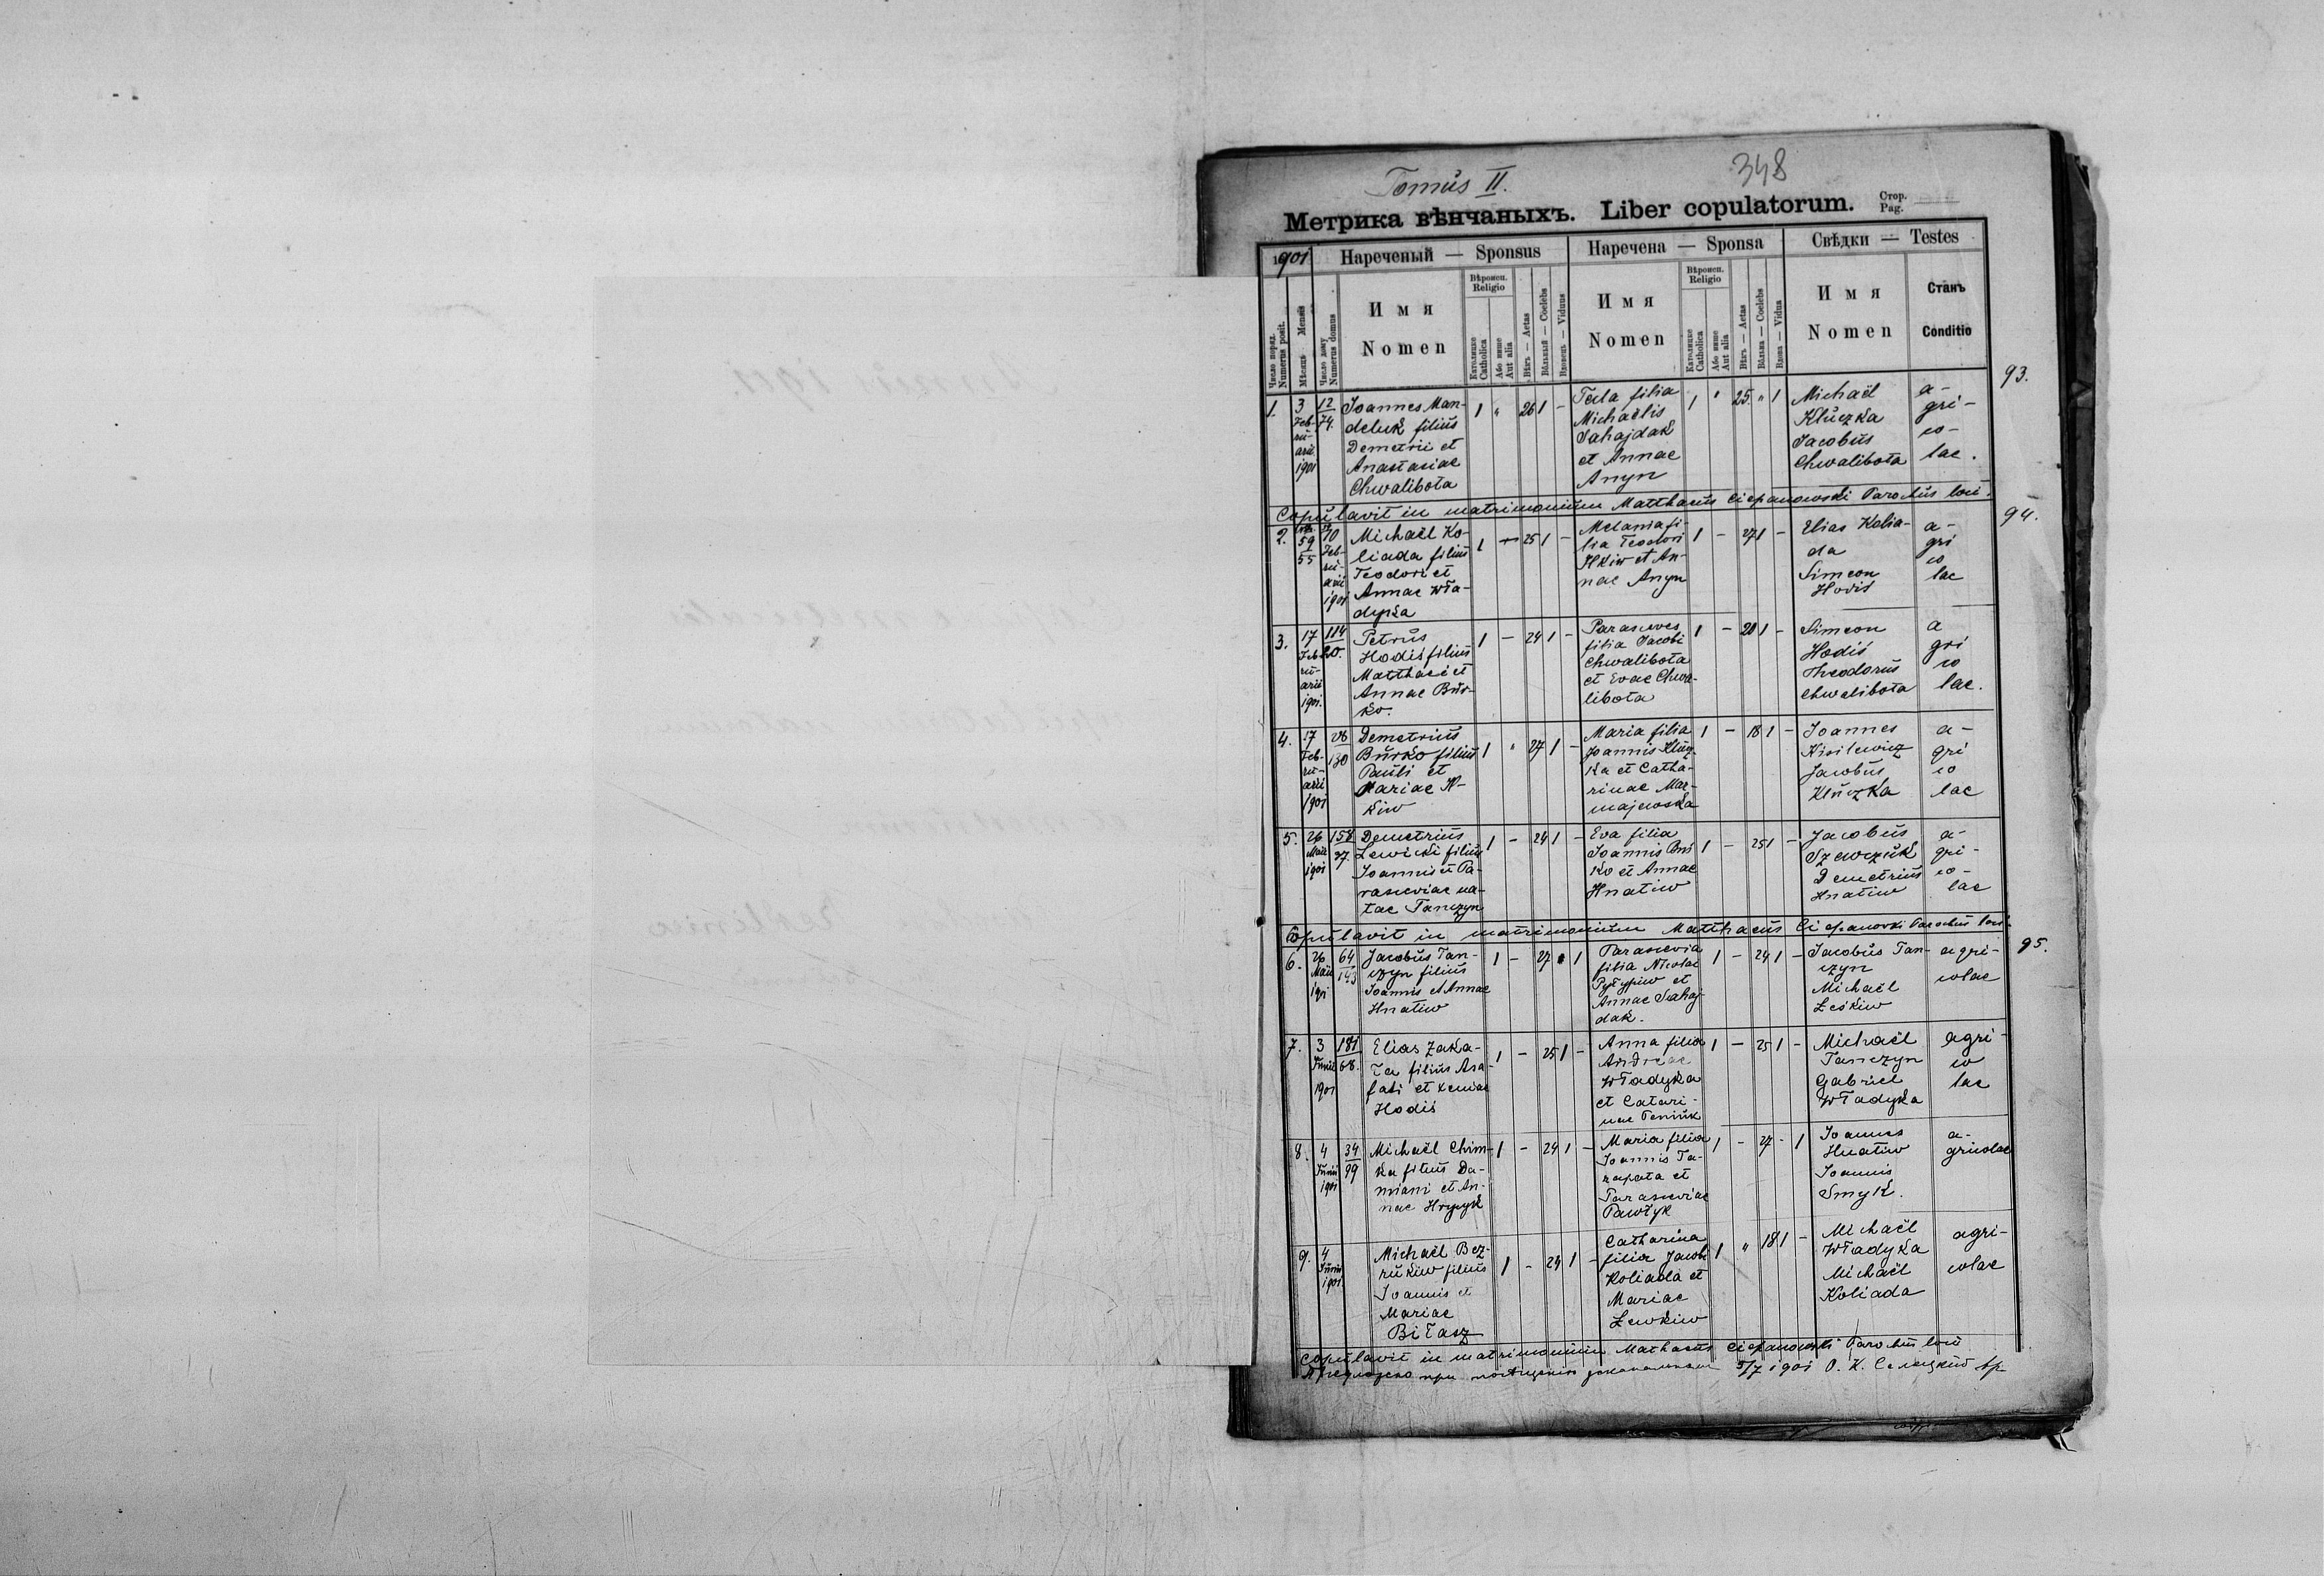 Tomus II.
348
Метрика вѣнчаныхъ. Liber copulatorum.
Стор.
Pag.
1901
Нареченый — Sponsus
Наречена — Sponsa
Свѣдки — Testes
Число поряд.
Numerus posit.
Мѣсяць Mensis
Число дому
Numerus domus
Имя
Nomen
Вѣроисп.
Religio
Католицке
Catholica
Або инше
Aut alia
Вѣкъ — Aetas
Вôльный — Coelebs
Вдовець — Viduus
Имя
Nomen
Вѣроисп.
Religio
Католицке
Catholica
Або инше
Aut alia
Вѣкъ — Aetas
Вôльна — Coelebs
Вдова — Vidua
Имя
Nomen
Станъ
Conditio
93.
1. 3 Februarii 1901 12/74.
Joannes Man-
deluk filius
Demetrii et
Anastasiae
Chwalibota
1 " 26 1 -
Tecla filia
Michaëlis
Sahajdak
et Annae
Anyn
1 " 25. " 1
Michaël
Kluczka
Jacobus
Chwalibota
a-
gri-
co-
lae.
Copulavit in matrimonium Matthaeus Ciepanowski Parochus loci.
94.
2. 59/55 10 Februarii 1901
Michaël Ko-
liada filius
Teodori et
Annae Wła-
dyka
1 - 25 1 -
Melania fi-
lia Teodori
Ilkiw et An-
nae Anyn
1 - 27 1 -
Elias Kolia-
da
Simeon
Hodis
a-
gri
co
lae
3. 17 Februarii 1901. 114/20.
Petrus
Hodis filius
Matthaei et
Annae Bur-
ko.
1 - 24 1 -
Parasceves
filia Jacobi
Chwalibota
et Evae Chwa-
libota
1 - 20 1 -
Simeon
Hodis
Theodorus
Chwalibota
a
gri
co
lae.
4. 17 Februarii 1901 28/130
Demetrius
Burko filius
Pauli et
Mariae Il-
kiw
1 " 27 1 -
Maria filia
Joannis Klucz-
ka et Catha-
rinae Mac-
majewska
1 - 18 1 -
Joannes
Kisilewicz
Jacobus
Kluczka
a-
gri
co
lae
5. 26 Maii 1901 158/37.
Demetrius
Lewicki filius
Joannis et Pa-
rasceviae na-
tae Tanczyn
1 - 24 1 -
Eva filia
Joannis Bur
ko et Annae
Hnatiw
1 - 25 1 -
Jacobus
Szewczuk
Demetrius
Hnatiw
a-
gri-
co-
lae
Copulavit in matrimonium Matthaeus Ciepanowski Parochus loci.
95.
6. 26 Maii 1901 64/143
Jacobus Tan-
czyn filius
Joannis et Annae
Hnatiw
1 - 27 1
Parascevia
filia Nicolae
et
Annae Sahaj-
dak.
1 - 24 1 -
Jacobus Tan-
czyn
Michaël
Łeskiw
agri-
colae
7. 3 Junii 1901 181/68.
Elias Zaka-
la filius Asa-
fati et Xeniae
Hodis
1 - 25 1 -
Anna filia
Andreae
Władyka
et Catari-
nae
1 - 25 1 -
Michaël
Tanczyn
Gabriel
Władyka
agri-
co
lae
8. 4 Junii 1901 34/99
Michaël Chim-
ka filius Da-
miani et An-
nae Hryzyk
1 - 24 1 -
Maria filia
Joannis Ta-
rapata et
Parasceviae
Pawłyk
1 - 27 - 1
Joannes
Hnatiw
Joannis
Smyk.
a-
gricolae
9. 4 Junii 1901
Michaël Bez-
rukiw filius
Joannis et
Mariae
Biłasz
1 - 24 1 -
Catharina
filia Jacobi
Koliada et
Mariae
Lewkiw
1 " 18 1 -
Michaël
Władyka
Michaël
Koliada
agri-
colae
Copulavit in matrimonium Mathaeus Ciepanowski Parochus loci
5/7 1901